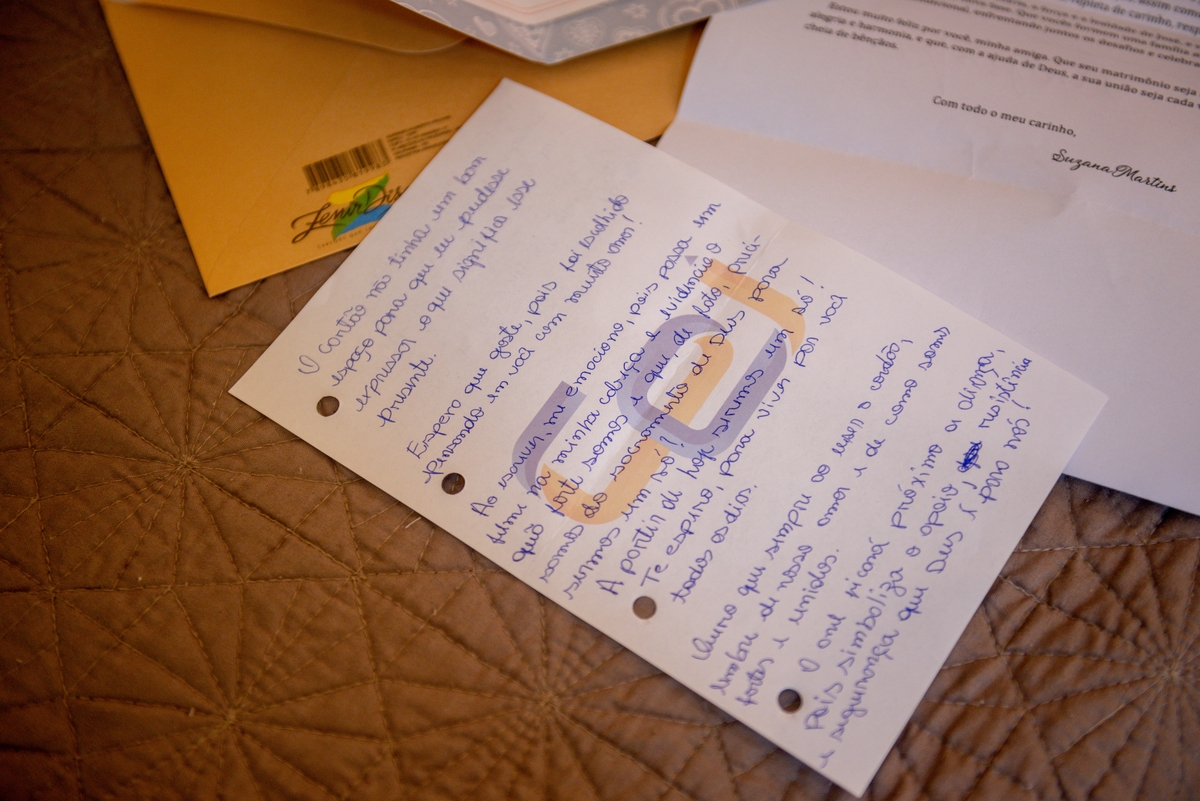 alegria e harmonia, e que, com a ajuda de Deus, a sua união seja cada
cheia de bênçãos.
Estou muito feliz por você, minha amiga. Que seu matrimônio seja
enfrentando juntos os desafios e celebra
Com todo o meu carinho,
Suzana Martins
O cartão não tinha um bom
espaço para que eu pudesse
expressar o que significa esse
presente.
Espero que goste, pois foi escolhido
pensando em você com muito amor!
Ao escrever, me emociono, pois passa um
filme na minha cabeça e evidencia o
quão forte somos e que, de fato, preci-
samos do sacramento de Deus para
sermos um só!
A partir de hoje seremos um só!
Te espero, para viver por você
todos os dias.
Quero que sempre ao usar o cordão,
lembre de nosso amor e de como somos
fortes e unidos.
O anel ficará próximo a aliança,
pois simboliza o apoio, resistência
e segurança que Deus é para nós!